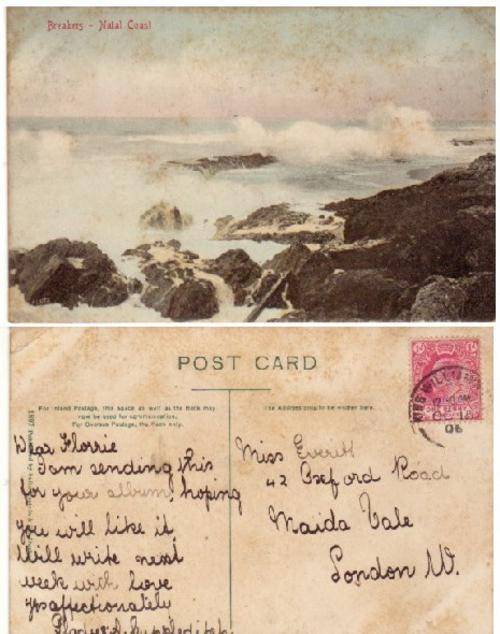 Breakers - Natal Coast
POST CARD
For Inland Postage, this space as well as the Back may
now be used for communication.
For Oversea Postage, the Back only.
The Address only to be written here.
OC 18
06
Dear Florrie
I am sending this
for your album, hoping
you will like it
Will write next
week with love
yrs affectionately
Miss Everett
42 Oxford Road
Maida Vale
London W.